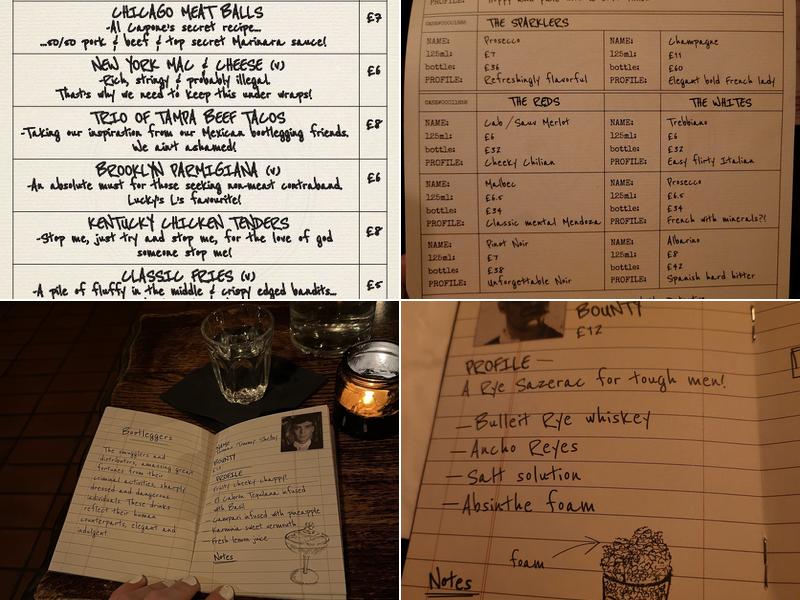 CHICAGO MEAT BALLS
£7
-Al Capone's secret recipe...
...50/50 pork & beef & top secret Marinara sauce!
NEW YORK MAC & CHEESE (v)
£6
-Rich, stringy & probably illegal.
That's why we need to keep this under wraps!
TRIO OF TAMPA BEEF TACOS
£8
-Taking our inspiration from our Mexican bootlegging friends.
We ain't ashamed!
BROOKLYN PARMIGIANA (v)
£6
-An absolute must for those seeking non-meat contraband.
Lucky's L's favourite!
KENTUCKY CHICKEN TENDERS
£8
-Stop me, just try and stop me, for the love of god
someone stop me!
CLASSIC FRIES (v)
£5
-A pile of fluffy in the middle & crispy edged bandits...
PROFILE:
THE SPARKLERS
NAME: Prosecco
125ml: £7
bottle: £36
PROFILE: Refreshingly flavorful
NAME: Champagne
125ml: £11
bottle: £60
PROFILE: Elegant bold French lady
THE REDS
THE WHITES
NAME: Cab/Sauv Merlot
125ml: £6
bottle: £32
PROFILE: Cheeky Chilian
NAME: Trebbiano
125ml: £6
bottle: £32
PROFILE: Easy flirty Italian
NAME: Malbec
125ml: £6.5
bottle: £34
PROFILE: Classic mental Mendoza
NAME: Prosecco
125ml: £6.5
bottle: £34
PROFILE: French with minerals?!
NAME: Pinot Noir
125ml: £7
bottle: £38
PROFILE: Unforgettable Noir
NAME: Albarino
125ml: £8
bottle: £42
PROFILE: Spanish hard hitter
Bootleggers
The smugglers and
distributors, amassing great
fortunes from their
criminal activities, sharply
dressed and dangerous
individuals. These drinks
reflect their human
counterparts, elegant and
indulgent.
NAME
Thomas 'Tommy' Shelby
BOUNTY
PROFILE
Fruity cheeky chappy!
El Cabron Tequilana infused
with Basil
Campari infused with pineapple
Karmina sweet vermouth
-Fresh lemon juice
Notes
BOUNTY
£12
PROFILE —
A Rye Sazerac for tough men!
—Bulleit Rye whiskey
—Ancho Reyes
—Salt solution
—Absinthe foam
foam
Notes